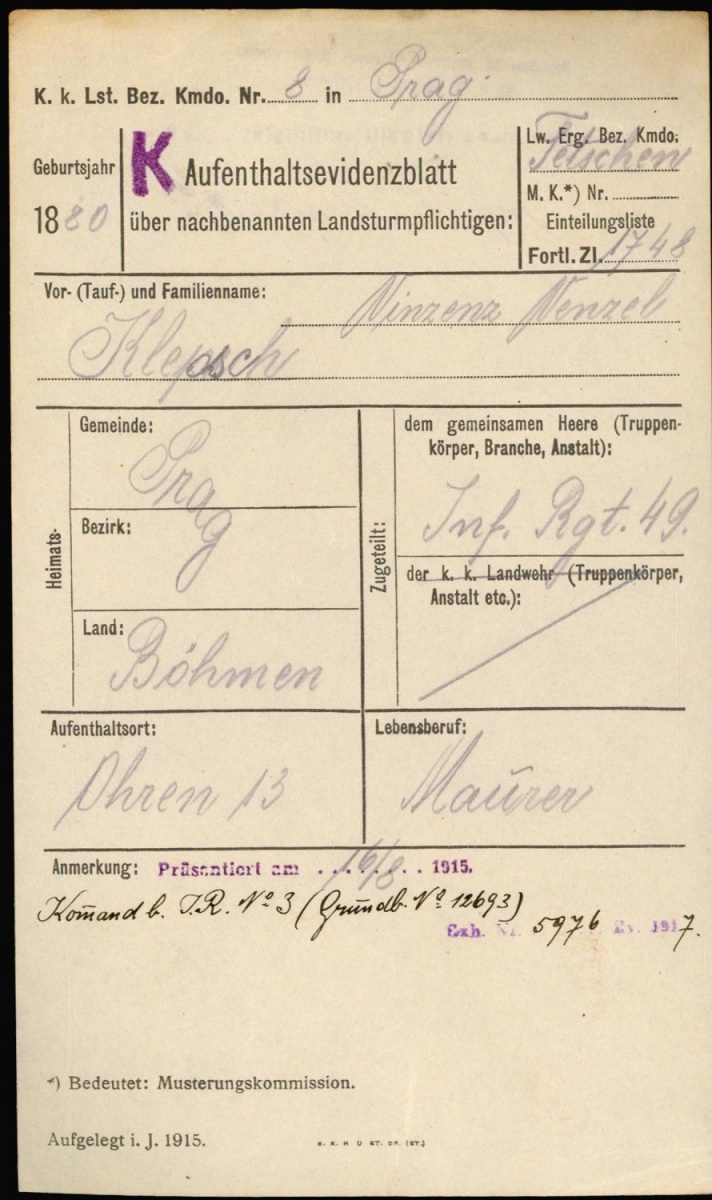 K. k. Lst. Bez. Kmdo. Nr. 8 in Prag
Geburtsjahr
1880
K Aufenthaltsevidenzblatt
über nachbenannten Landsturmpflichtigen:
Lw. Erg. Bez. Kmdo:
Tetschen
M. K.*) Nr.
Einteilungsliste
Fortl. Zl. 1748
Vor- (Tauf-) und Familienname: Vinzenz Wenzel
Klepsch
Heimats-
Gemeinde:
Prag
Bezirk:
Land:
Böhmen
Zugeteilt:
dem gemeinsamen Heere (Truppen-
körper, Branche, Anstalt):
Inf. Rgt. 49.
der k. k. Landwehr (Truppenkörper,
Anstalt etc.):
Aufenthaltsort:
Ohren 13
Lebensberuf:
Maurer
Anmerkung: Präsentiert am 16/8 1915.
Kom̄and b. I.R. No 3 (Grundb. No 12693)
Exh. Nr. 5976 Ev. 1917.
*) Bedeutet: Musterungskommission.
Aufgelegt i. J. 1915.
K. K. H U ST. DR. (ST.)